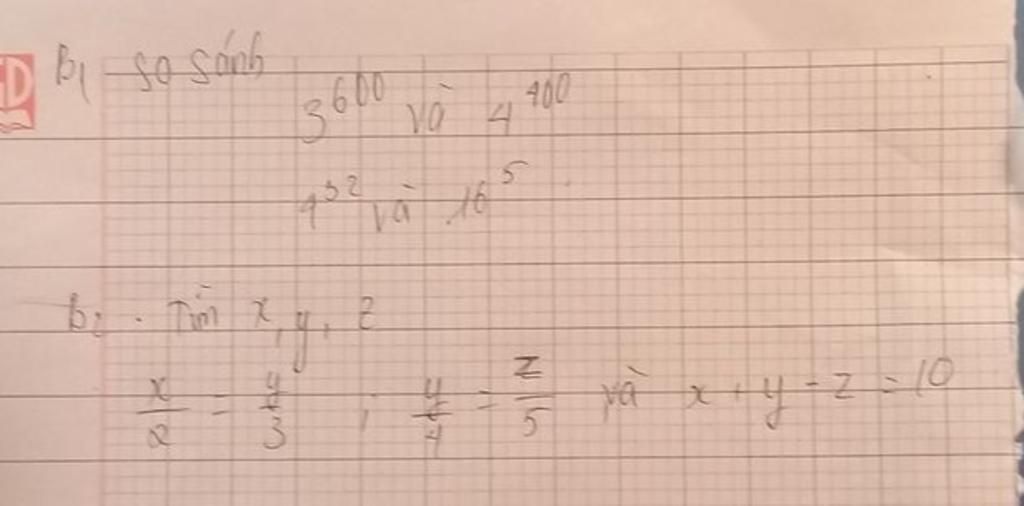 B₁ so sánh
3^600 và 4^400
4^32 và 16^5
b₂. Tìm x, y, z
x/2 = y/3 ; y/4 = z/5 và x + y - z = 10